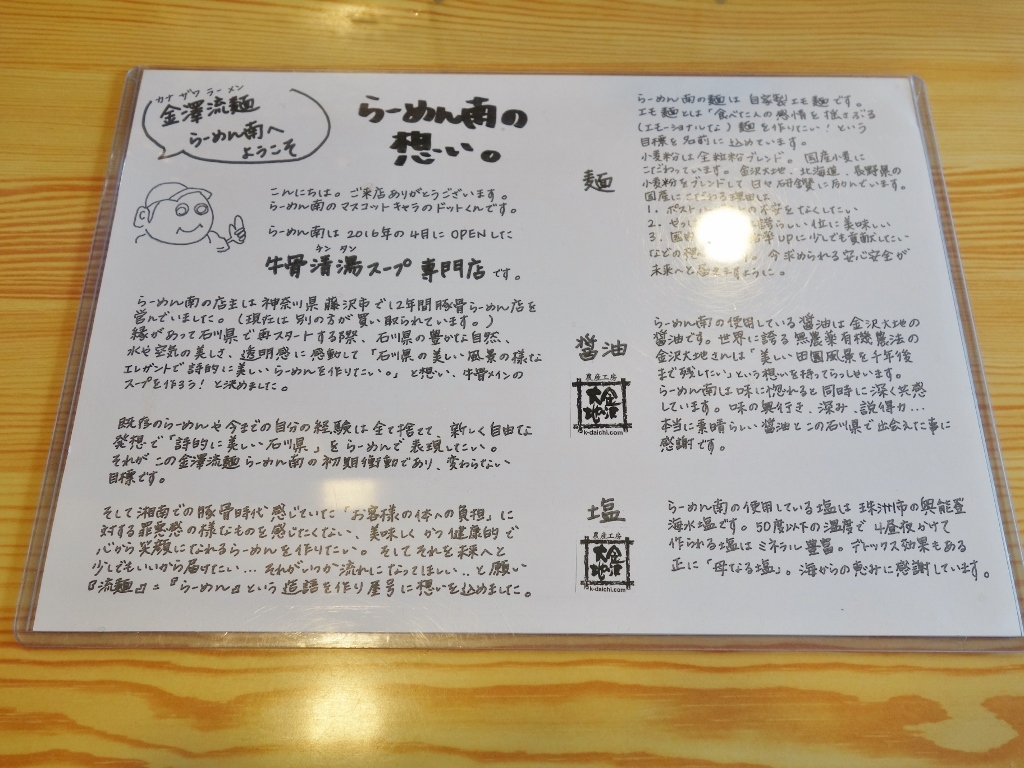 カナザワラーメン
金澤流麺
らーめん南へ
ようこそ
らーめん南の
想い。
こんにちは。ご来店ありがとうございます。
らーめん南のマスコットキャラのドットくんです。
らーめん南は2016年の4月にOPENした
タンタン
牛骨清湯スープ専門店です。
らーめん南の店主は神奈川県藤沢市で12年間豚骨らーめん店を
営んでいました。(現在は別の方が買い取られています。)
縁があって石川県で再スタートする際、石川県の豊かな自然、
水や空気の美しさ、透明感に感動して「石川県の美しい風景の様な
エレガントで詩的に美しいらーめんを作りたい。」と想い、牛骨メインの
スープを作ろう!と決めました。
既存のらーめんや今までの自分の経験は全て捨て、新しく自由な
発想で「詩的に美しい石川県」をらーめんで表現したい。
それがこの金澤流麺らーめん南の初期衝動であり、変わらない
目標です。
そして湘南での豚骨時代感じていた「お客様の体への負担」に
対する罪悪感の様なものを感じたくない、美味しくかつ健康的で
心から笑顔になれるらーめんを作りたい。そしてそれを未来へと
少しでもいいから届けたい…それがいつか流れになってほしい..と願い
『流麺』=『らーめん』という造語を作り屋号に想いを込めました。
麺
らーめん南の麺は自家製エモ麺です。
エモ麺とは「食べた人の感情を揺さぶる
(エモーショナルな)麺を作りたい!という
目標を名前に込めています。
小麦粉は全粒粉ブレンド。国産小麦に
こだわっています。金沢大地、北海道、長野県の
小麦粉をブレンドして日々研鑽に励んでいます。
国産にこだわる理由は
1. ポスト の不安をなくしたい
2. ぜっ 誇らしい位に美味しい
3. 国 率UPに少しでも貢献したい
などの想 今求められる安心安全が
未来へと届きますように。
醤油
農産工房
金沢大地
k-daichi.com
らーめん南の使用している醤油は金沢大地の
醤油です。世界に誇る無農薬有機農法の
金沢大地さんは「美しい田園風景を千年後
まで残したい」という想いを持ってらっしゃいます。
らーめん南は味に惚れると同時に深く共感
しています。味の奥行き、深み、説得力…
本当に素晴らしい醤油とこの石川県で出会えた事に
感謝です。
塩
農産工房
金沢大地
k-daichi.com
らーめん南の使用している塩は珠洲市の奥能登
海水塩です。50度以下の温度で4昼夜かけて
作られる塩はミネラル豊富。デトックス効果もある
正に「母なる塩」。海からの恵みに感謝しています。